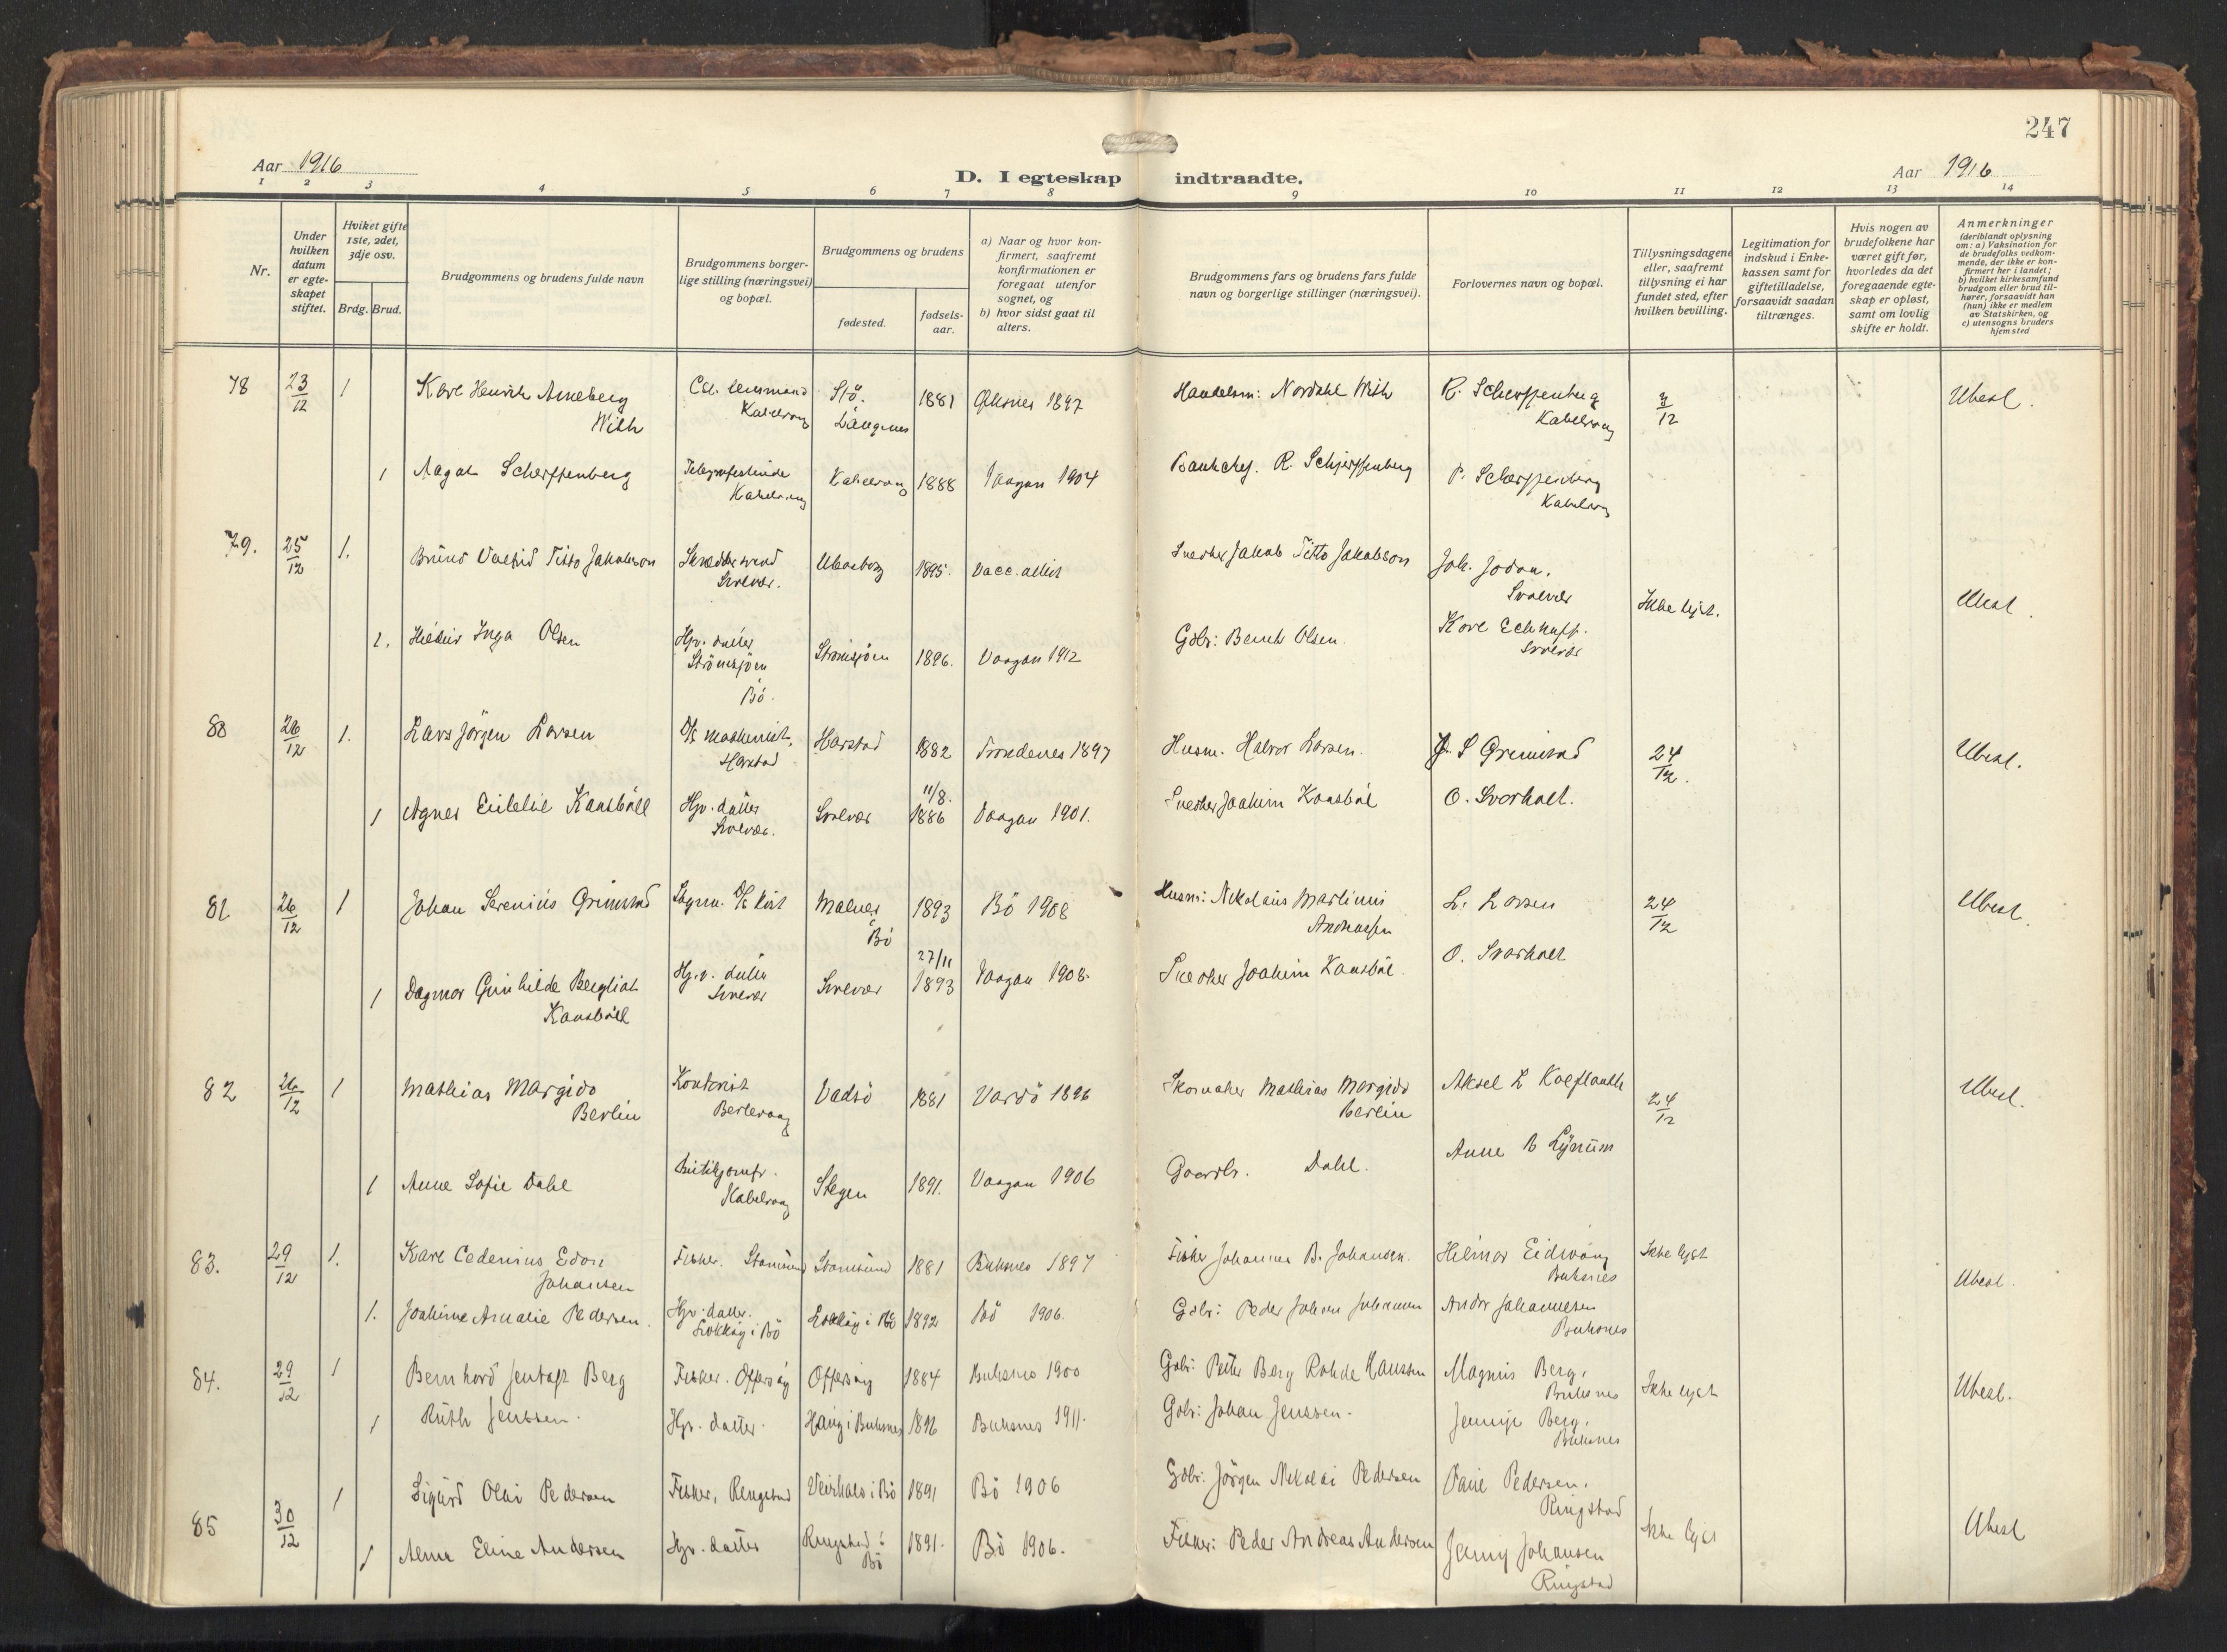 247
Aar 1916
D. I egteskap indtraadte.
Aar 1916
1 2 3 4 5 6 7 8 9 10 11 12 13 14
Nr.
Under hvilken datum er egteskapet stiftet.
Hviket gifte 1ste, 2det, 3dje osv.
Brdg. Brud.
Brudgommens og brudens fulde navn
Brudgommens borgerlige stilling (næringsvei) og bopæl.
Brudgommens og brudens
fødested.
fødselsaar.
a) Naar og hvor konfirmert, saafremt konfirmationen er foregaat utenfor sognet, og
b) hvor sidst gaat til alters.
Brudgommens fars og brudens fars fulde navn og borgerlige stillinger (næringsvei).
Forlovernes navn og bopæl.
Tillysningsdagene eller, saafremt tillysning ei har fundet sted, efter hvilken bevilling.
Legitimation for indskud i Enkekassen samt for giftetilladelse, forsaavidt saadan tiltrænges.
Hvis nogen av brudefolkene har været gift før, hvorledes da det foregaaende egteskap er opløst, samt om lovlig skifte er holdt.
Anmerkninger (deriblandt oplysning om: a) Vaksination for de brudefolks vedkommende, der ikke er konfirmert her i landet; b) hvilket kirkesamfund brudgom eller brud tilhører, forsaavidt han (hun) ikke er medlem av Statskirken, og c) utensogns bruders hjemsted
78 23/12 1 Karl Henrik Arneberg With Kabelvaag Stö. Langenes 1881 Öksnes 1897 Handelsm: Nordahl With R. Scherffenberg Kabelvaag 3/12 Ubesl.
1 Aagot Scherffenberg Telegrafistinde Kabelvaag Kabelvaag 1888 Vaagan 1904 Bankchef. R. Schjerffenberg P. Scherffenberg Kabelvaag
79. 25/12 1. Bruno Valfrid Titto Jakobson Skræddersvend Svolvær. Uleaborg 1895. Vacc. attest Snedker Jakob Titto Jakobson Joh. Jodan. Svolvær Ikke lyst. Ubesl.
1. Inga Olsen Hgv. datter Strömsjöen Bö. Strömsjöen 1896. Vaagan 1912 Gdbr: Berndt Olsen. Kare Svolvær
80 26/12 1. Lars Jörgen Larsen D/S maskinist, Harstad Harstad 1882 Trondenes 1897 Husm. Halvor Larsen. J. S Grimstad 24/12. Ubesl.
1 Agnes Kansböll Hgv. datter Svolvær. Svolvær 11/8. 1886 Vaagan 1901. Snedker Joakim Kansböl O. Svarholt.
81 26/12 1 Johan Serenius Grimstad Malnes i Bö 1893 Bö 1908 Husm: Nikolaus Martinus Andreassen L. Larsen 24/12 Ubesl.
1 Dagmar Gunhilde Bergliot Kansböll Hgv. datter Svolvær Svolvær 27/11 1893 Vaagan 1908. Snedker Joakim Kansböl. O. Svarholt
82 26/12 1 Mathias Margido Berlin Kontorist Berlevaag Vadsö 1881 Vardö 1896 Skomaker Mathias Margido Berlin Aksel L 24/12 Ubesl.
1 Anne Sofie Dahl Butikjomfr. Kabelvaag Stegen 1891. Vaagan 1906 Gaardbr. Dahl. Anne B Lynum
83. 29/12 1. Karl Cedenius Edon Johansen Fisker. Stamsund Stamsund 1881 Buksnes 1897 Fisker Johannes B. Johansen. Hilmar Eidvaag Buksnes Ikke lyst Ubesl.
1. Joakime Amalie Pedersen. Hgv. datter. i Bö i Bö 1892 Bö 1906. Gdbr: Peder Johan Johansen Andr Johannesen Buksnes
84. 29/12 1 Bernhard Jentoft Berg Fisker. Offersöy Offersöy 1884 Buksnes 1900 Gdbr: Petter Berg Rohde Hansen Magnus Berg. Buksnes Ikke lyst Ubesl.
1 Ruth Jenssen. Hgv. datter. Haug i Buksnes 1896 Buksnes 1911. Gdbr: Johan Jenssen. Berg. Buksnes
85 30/12 1 Sigurd Olai Pedersen Fisker, Ringstad Veirhals i Bö 1891 Bö 1906 Gdbr: Jörgen Nikolai Pedersen Pedersen. Ringstad Ikke lyst Ubesl
1 Alma Eline Andersen Hgv. datter Ringstad i Bö 1891. Bö 1906. Fisker: Peder Andreas Andersen Jenny Johansen Ringstad